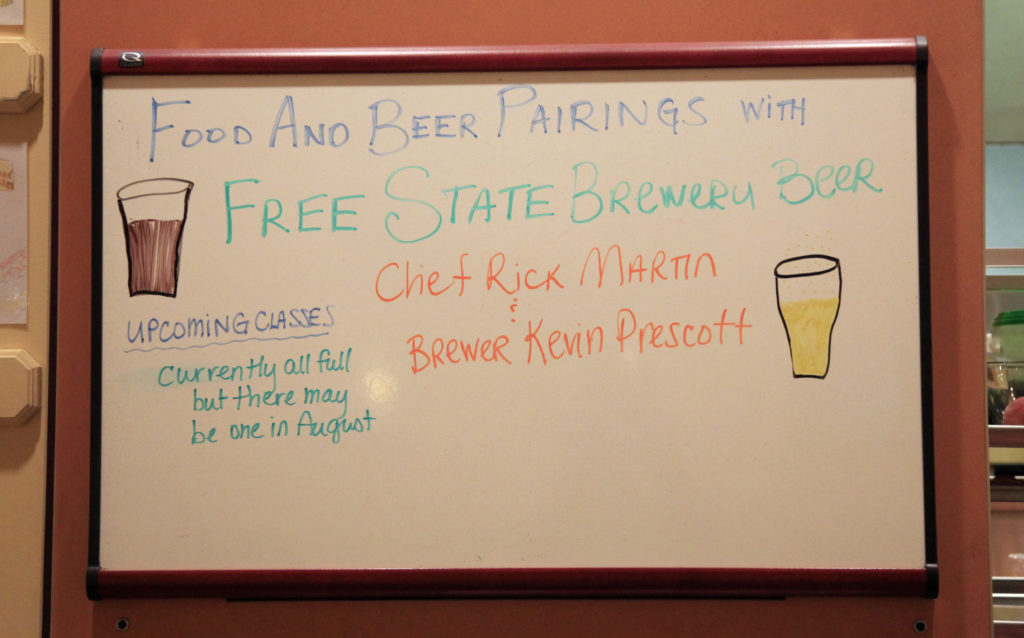 FOOD AND BEER PAIRINGS WITH
FREE STATE BREWERY BEER
Chef Rick MARTIN
&
BREWER Kevin Prescott
UPCOMING CLASSES
Currently all full
but there may
be one in August